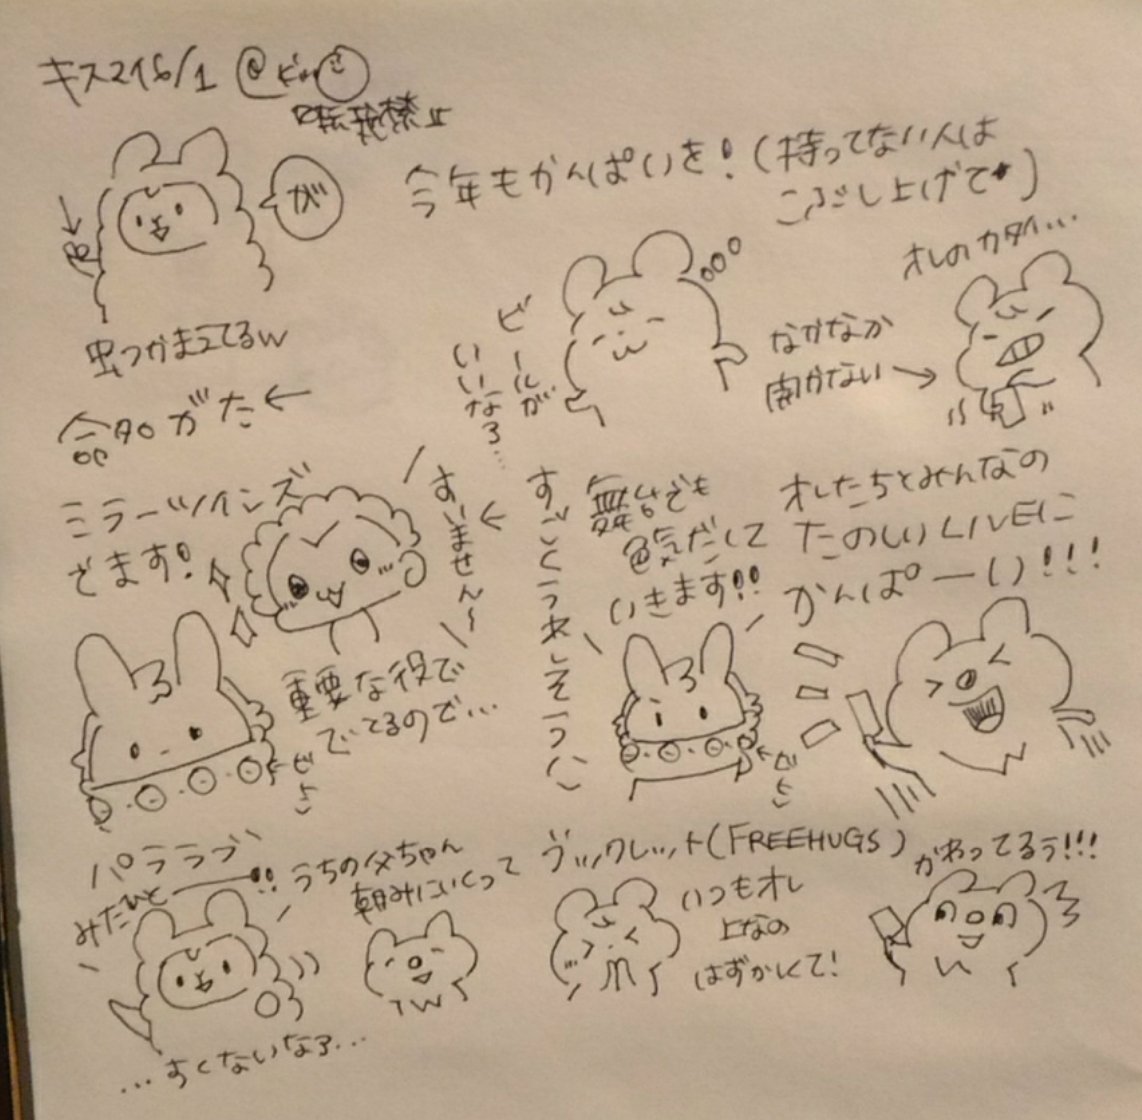 キスマイ6/1 @
転載禁止
が
今年もかんぱいを!(持ってない人は
こぶし上げて
虫つかまえてるw
命名がた←
ビールが
いいなァ…
オレのカタイ…
なかなか
開かない→
ミラーツインズ
でます!
すいません〜
重要な役で
でてるので…
すごくうれしそう
舞台でも
色気だして
いきます!!
オレたちとみんなの
たのしいLIVEに
かんぱーい!!!
パラララブ
みたひと―――!!
…すくないなァ…
うちの父ちゃん
朝みにいくって
ブックレット(FREEHUGS)
いつもオレ
上なの
はずかしくて!
がわってるぅ!!!